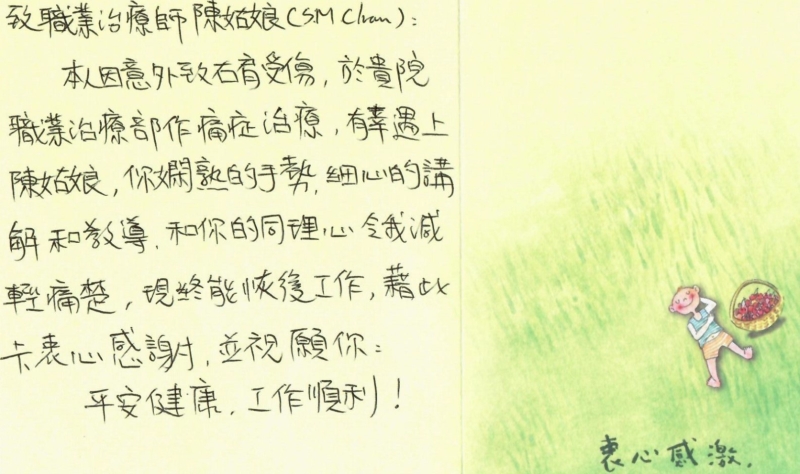 致職業治療師陳姑娘(SM Chan):
本人因意外致右肩受傷,於貴院
職業治療部作痛症治療,有幸遇上
陳姑娘,你嫻熟的手勢,細心的講
解和教導,和你的同理心令我減
輕痛楚,現終能恢復工作,藉此
卡衷心感謝,並祝願你:
平安健康,工作順利!
衷心感激,